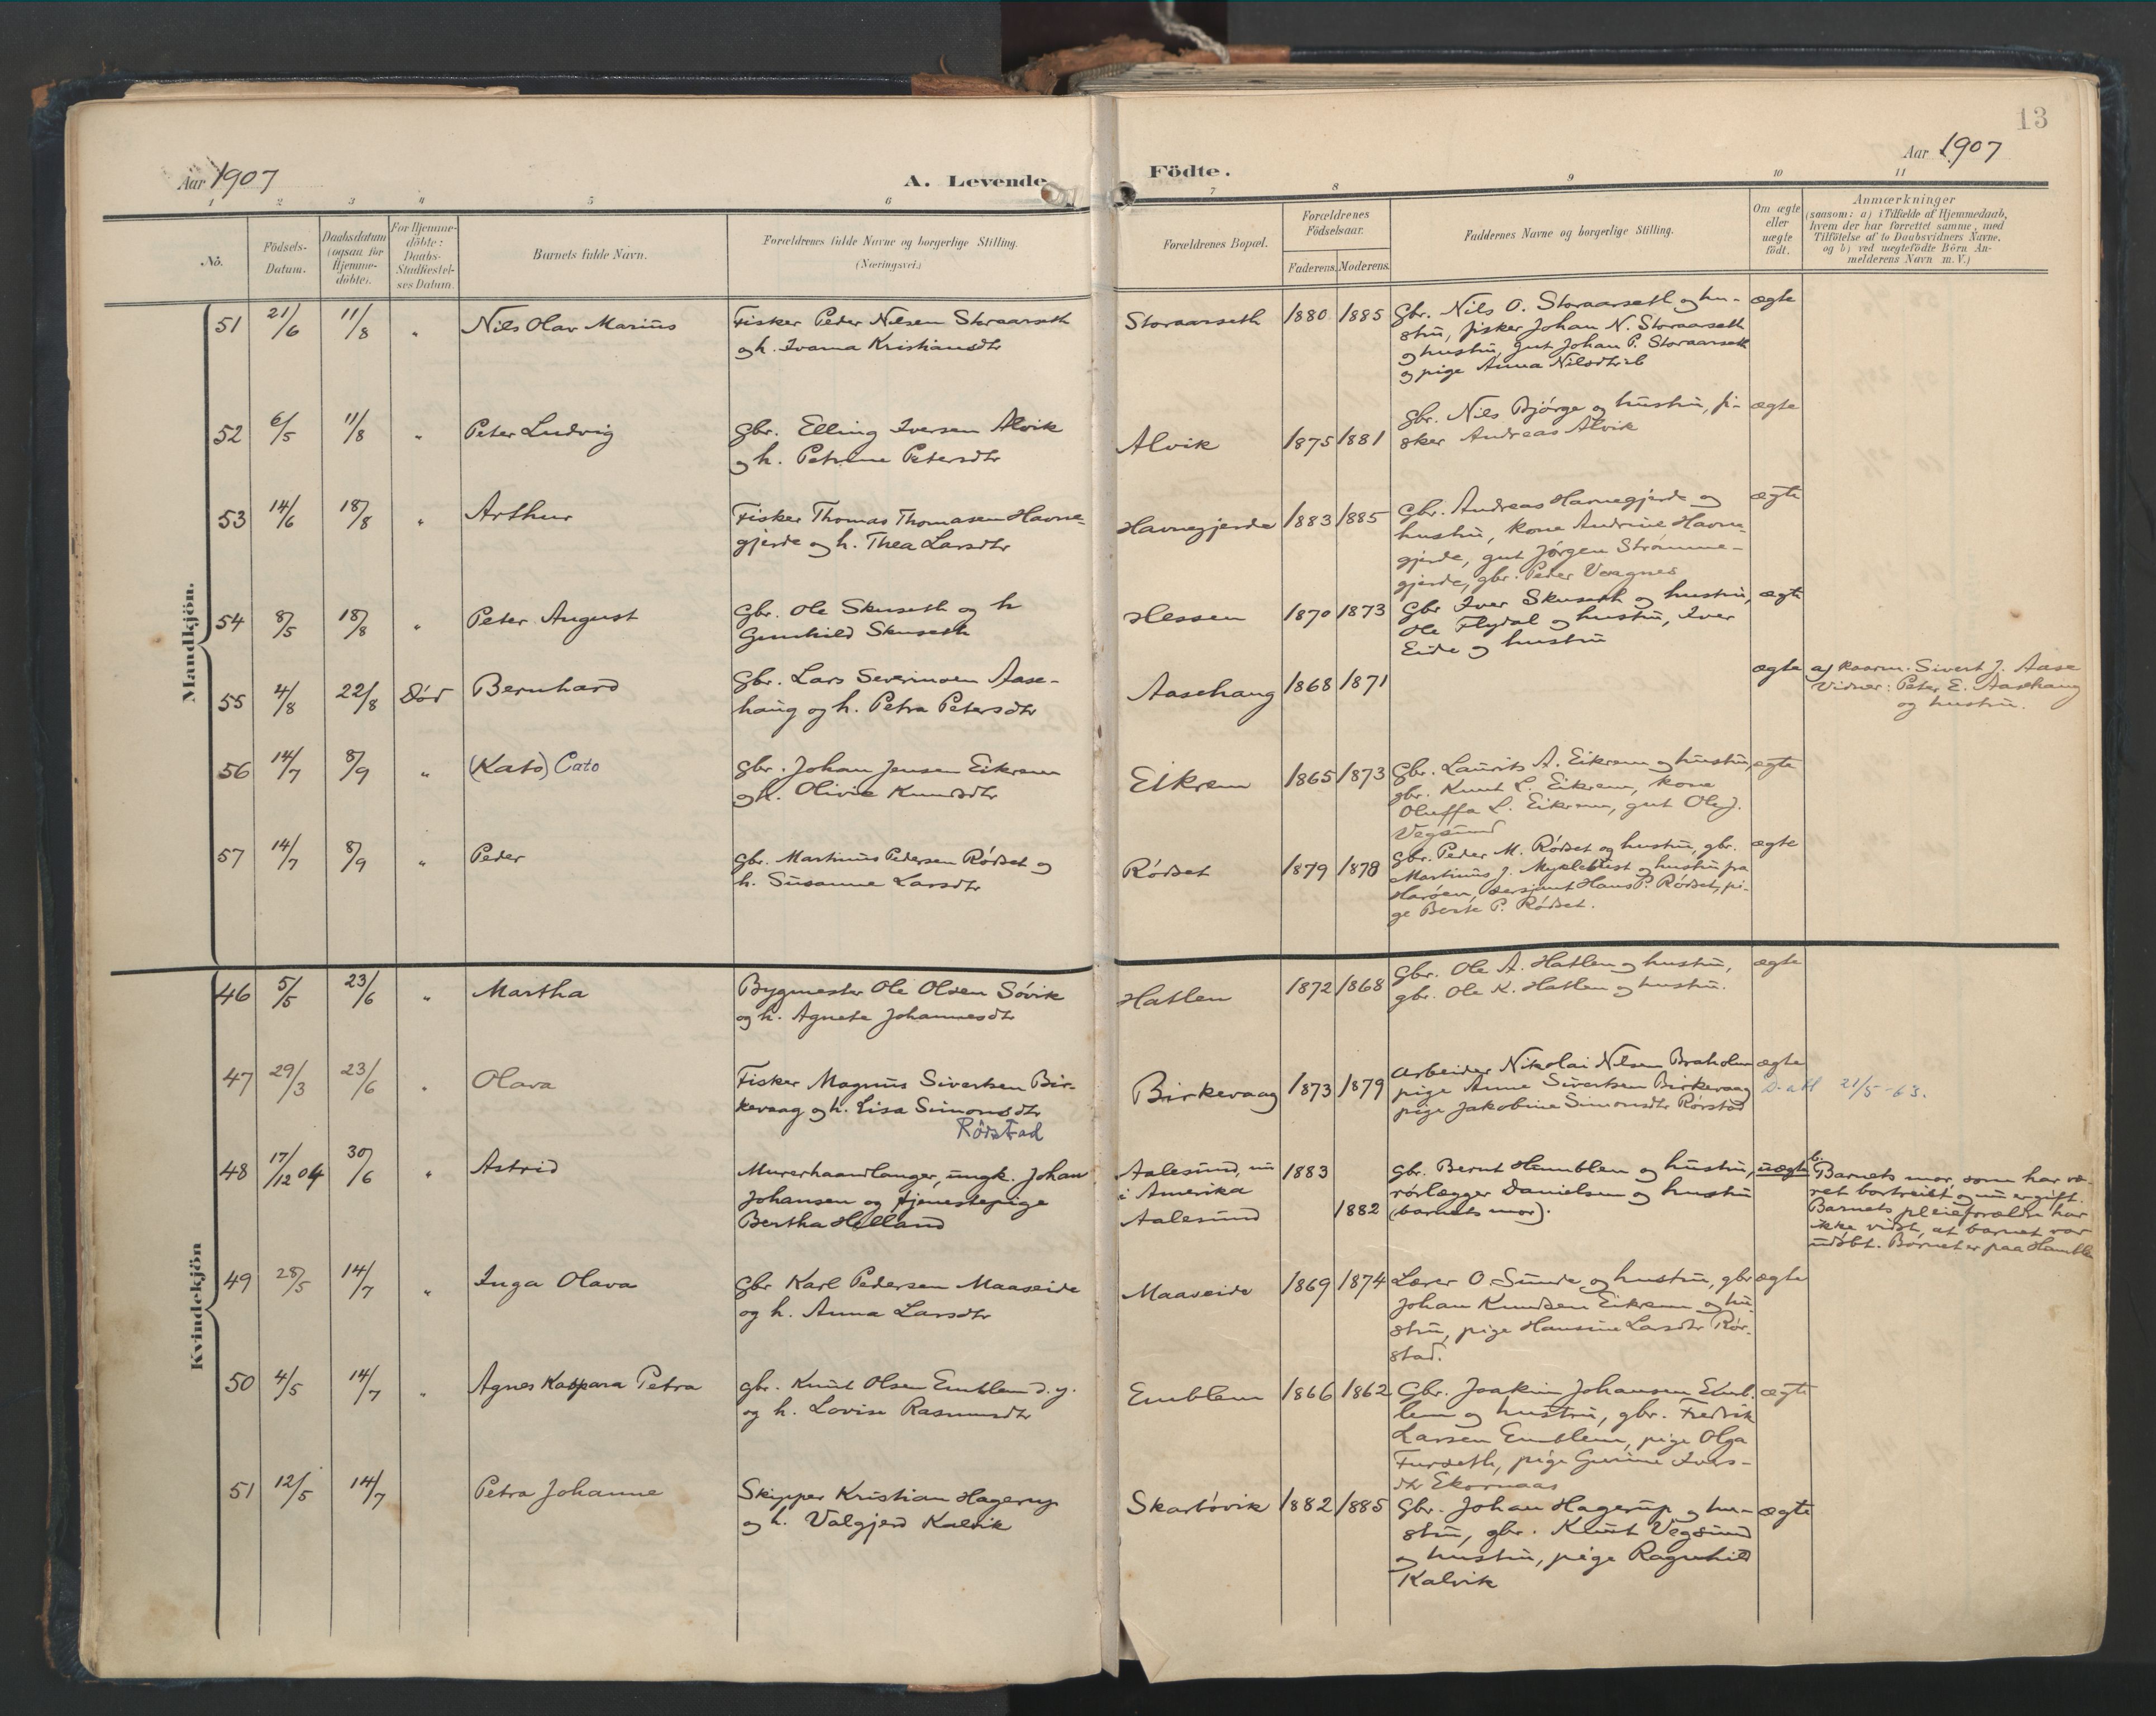 13
Aar 1907
A. Levende
Födte.
Aar 1907
1 2 3 4 5 6 7 8 9 10 11
No.
Födsels-
Datum.
Daabsdatum
(ogsaa for
Hjemme-
döbte).
For Hjemme-
döbte:
Daabs-
Stadfæstel-
ses Datum.
Barnets fulde Navn.
Forældrenes fulde Navne og borgerlige Stilling.
(Næringsvei.)
Forældrenes Bopæl.
Forældrenes
Födselsaar.
Faderens. Moderens.
Faddernes Navne og borgerlige Stilling.
Om ægte
eller
uægte
födt.
Anmærkninger
(saasom: a) i Tilfælde af Hjemmedaab,
hvem der har forrettet samme, med
Tilföielse af to Daabsvidners Navne,
og b) ved uægtefödte Börn An-
melderens Navn m. V.)
Mandkjön.
51 21/6 11/8 " Nils Olav Marius
Fisker Peder Nilsen Storaarseth
og h. Ivana Kristiansdtr
Storaarseth 1880 1885
Gbr. Nils O. Storaarseth og hu-
stru, fisker Johan N. Storaarseth
og hustru, gut Johan P. Storaarseth
og pige Anna Nilsdtr ib
ægte
52 6/5 11/8 " Peter Ludvig
Gbr. Elling Iversen Alvik
og h. Petrine Petersdtr
Alvik 1875 1881
Gbr. Nils Bjørge og hustru, fi-
sker Andreas Alvik
ægte
53 14/6 18/8 " Arthur
Fisker Thomas Thomasen Havne-
gjerde og h. Thea Larsdtr
Havnegjerde 1883 1885
Gbr. Andreas Havnegjerde og
hustru, kone Andrine Havne-
gjerde, gut Jørgen Strømme-
gjerde, gbr. Peder Vaagnes
ægte
54 8/5 18/8 " Peter August
Gbr. Ole Skuseth og h
Gunhild Skuseth
Hessen 1870 1873
Gbr Iver Skuseth og hustru,
Ole Flydal og hustru, Iver
Eide og hustru
ægte
55 4/8 22/8 Død Bernhard
Gbr. Lars Severinsen Aase-
haug og h. Petra Petersdtr
Aasehaug 1868 1871
ægte
a) kaarm. Sivert J. Aase
Vidner: Peter E. Aasehaug
og hustru.
56 14/7 8/9 " (Kato) Cato
Gbr. Johan Jensen Eikrem
og h. Olivie Knudsdtr
Eikrem 1865 1873
Gbr. Laurits A. Eikrem og hustru,
gbr. Knut L. Eikrem, kone
Oluffa L. Eikrem, gut Ole J.
Vegsund
ægte
57 14/7 8/9 " Peder
Gbr. Martinus Pedersen Rødset og
h. Susanne Larsdtr
Rødset 1879 1878
Gbr. Peder M. Rødset og hustru, gbr.
Martinus J. Myklebust og hustru fra
Harøen, sersjant Hans P. Rødset, pi-
ge Berte P. Rødset.
ægte
Kvindekjön
46 5/5 23/6 " Martha
Bygmester Ole Olsen Søvik
og h. Agnete Johannesdtr
Hatlen 1872 1868
Gbr. Ole A. Hatlen og hustru,
gbr. Ole K. Hatlen og hustru.
ægte
47 29/3 23/6 " Olava
Fisker Magnus Sivertsen Bir-
kevaag og h. Lisa Simonsdtr
Rörstad
Birkevaag 1873 1879
Arbeider Nikolai Nilsen Braholm
pige Anne Sivertsen Birkevaag
pige Jakobine Simonsdtr Rørstad
ægte
D. att 21/5-63.
48 17/12 04 30/6 " Astrid
Murerhaandlanger, ungk. Johan
Johansen og tjenestepige
Bertha Helland
Aalesund, nu
i Amerika 1883
Aalesund 1882
Gbr. Bernt Humblen og hustru,
rørlægger Danielsen og hustru
(barnets mor).
uægte
b. Barnets mor, som har væ-
ret bortreist og nu er gift.
Barnets pleieforældre har
ikke vidst, at barnet var
udøbt. Barnet er paa Humblen
49 28/5 14/7 " Inga Olava
Gbr Karl Pedersen Maaseide
og h. Anna Larsdtr
Maaseide 1869 1874
Lærer O. Sunde og hustru, gbr
Johan Knudsen Eikrem og hu-
stru, pige Hansine Larsdtr Rør-
stad.
ægte
50 4/5 14/7 " Agnes Kaspara Petra
gbr. Knut Olsen Emblem d. y.
og h. Lovise Rasmusdtr
Emblem 1866 1862
Gbr. Joakim Johansen Emb-
lem og hustru, gbr. Fredrik
Larsen Emblem, pige Olga
Furseth, pige Gurine Ivers-
dtr Ekornaas
ægte
51 12/5 14/7 Petra Johanne
Skipper Kristian Hagerup
og h. Valgjerd Kalvik
Skarbøvik 1882 1885
Gbr. Johan Hagerup og hu-
stru, gbr. Knut Vegsund
og hustru, pige Ragnhild
Kalvik
ægte